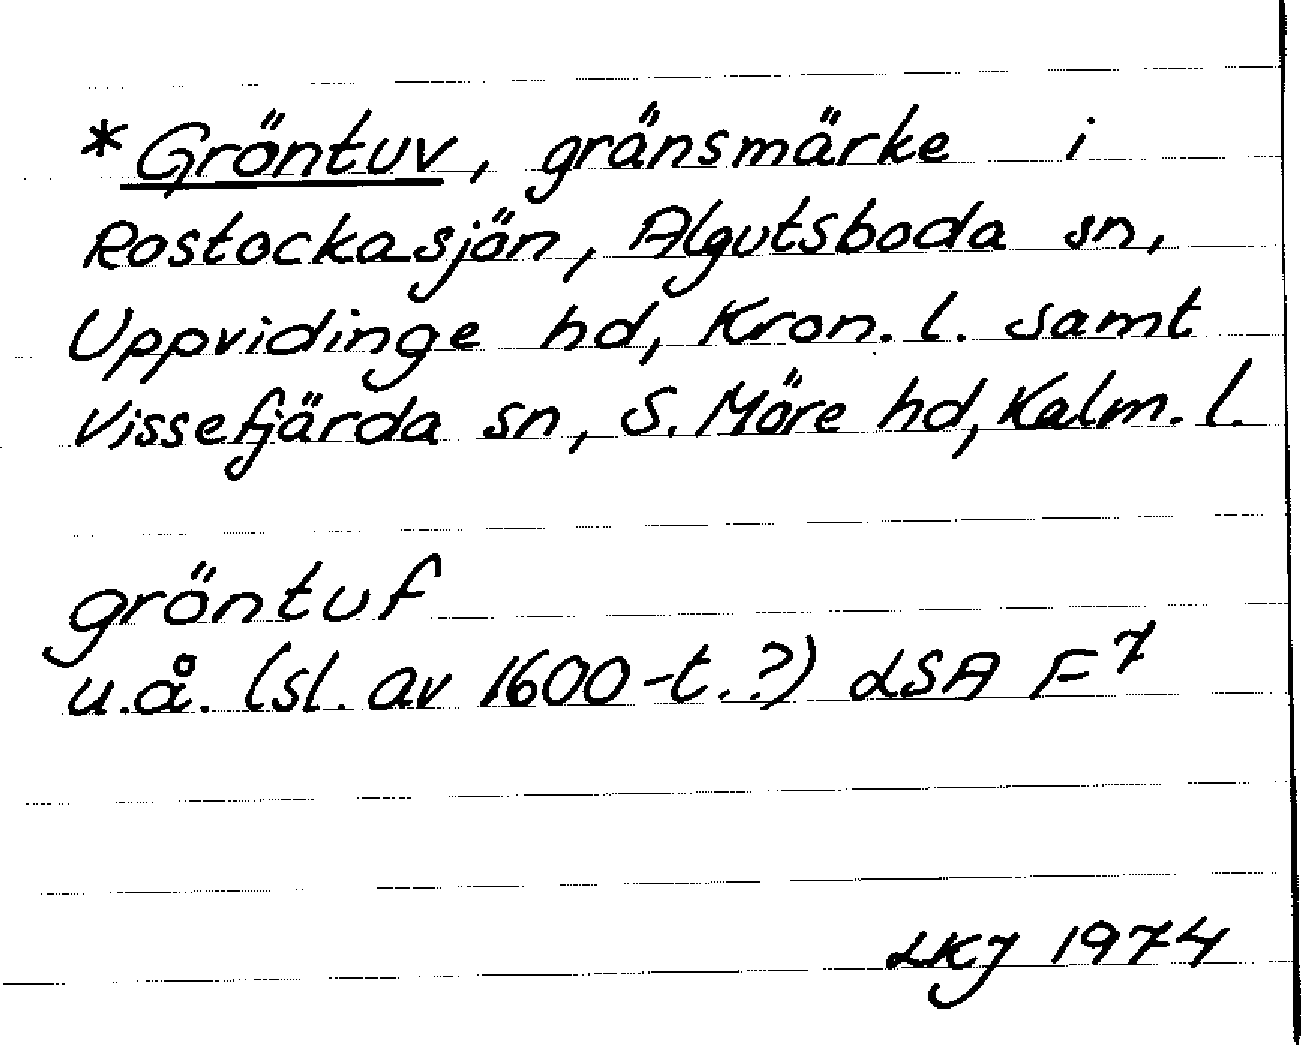 *Gröntuv, gränsmärke i
Rostockasjön, Algutsboda sn,
Uppvidinge hd, Kron. l. samt
Vissefjärda sn, S. Möre hd, Kalm. l.
gröntuf
u.å. (sl. av 1600-t.?) LSA F7
LKJ 1974